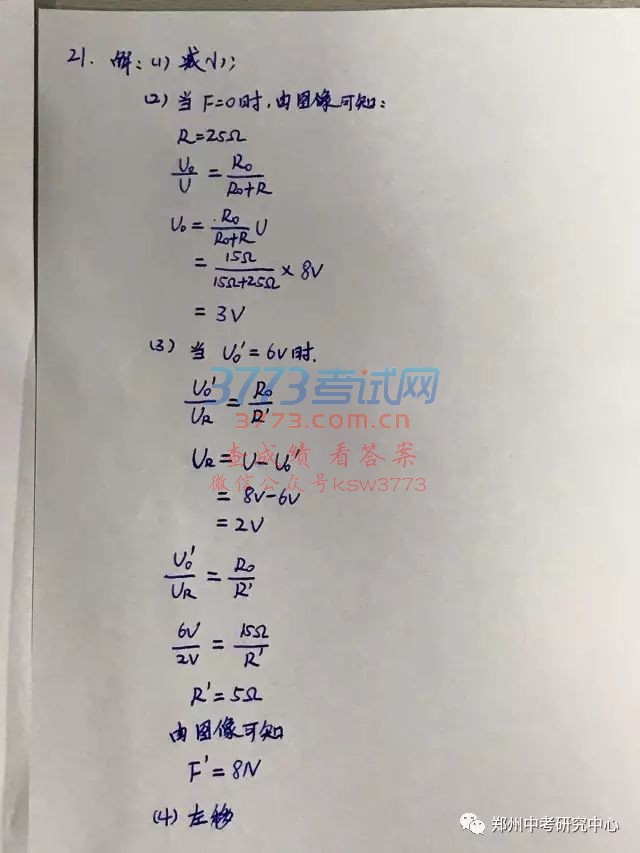 21. 解：(1) 减小；
(2) 当 F=0时，由图像可知：
R=25Ω
U₀/U = R₀/(R₀+R)
U₀ = R₀/(R₀+R) U
= 15Ω/(15Ω+25Ω) × 8V
= 3V
(3) 当 U₀'=6V时.
3773考试网
U₀'/U_R = R₀/R'
3773.com.cn
查成绩 看答案
U_R = U-U₀'
微信公众号ksw3773
= 8V-6V
= 2V
U₀'/U_R = R₀/R'
6V/2V = 15Ω/R'
R'=5Ω
由图像可知
F'=8N
(4) 左移
郑州中考研究中心